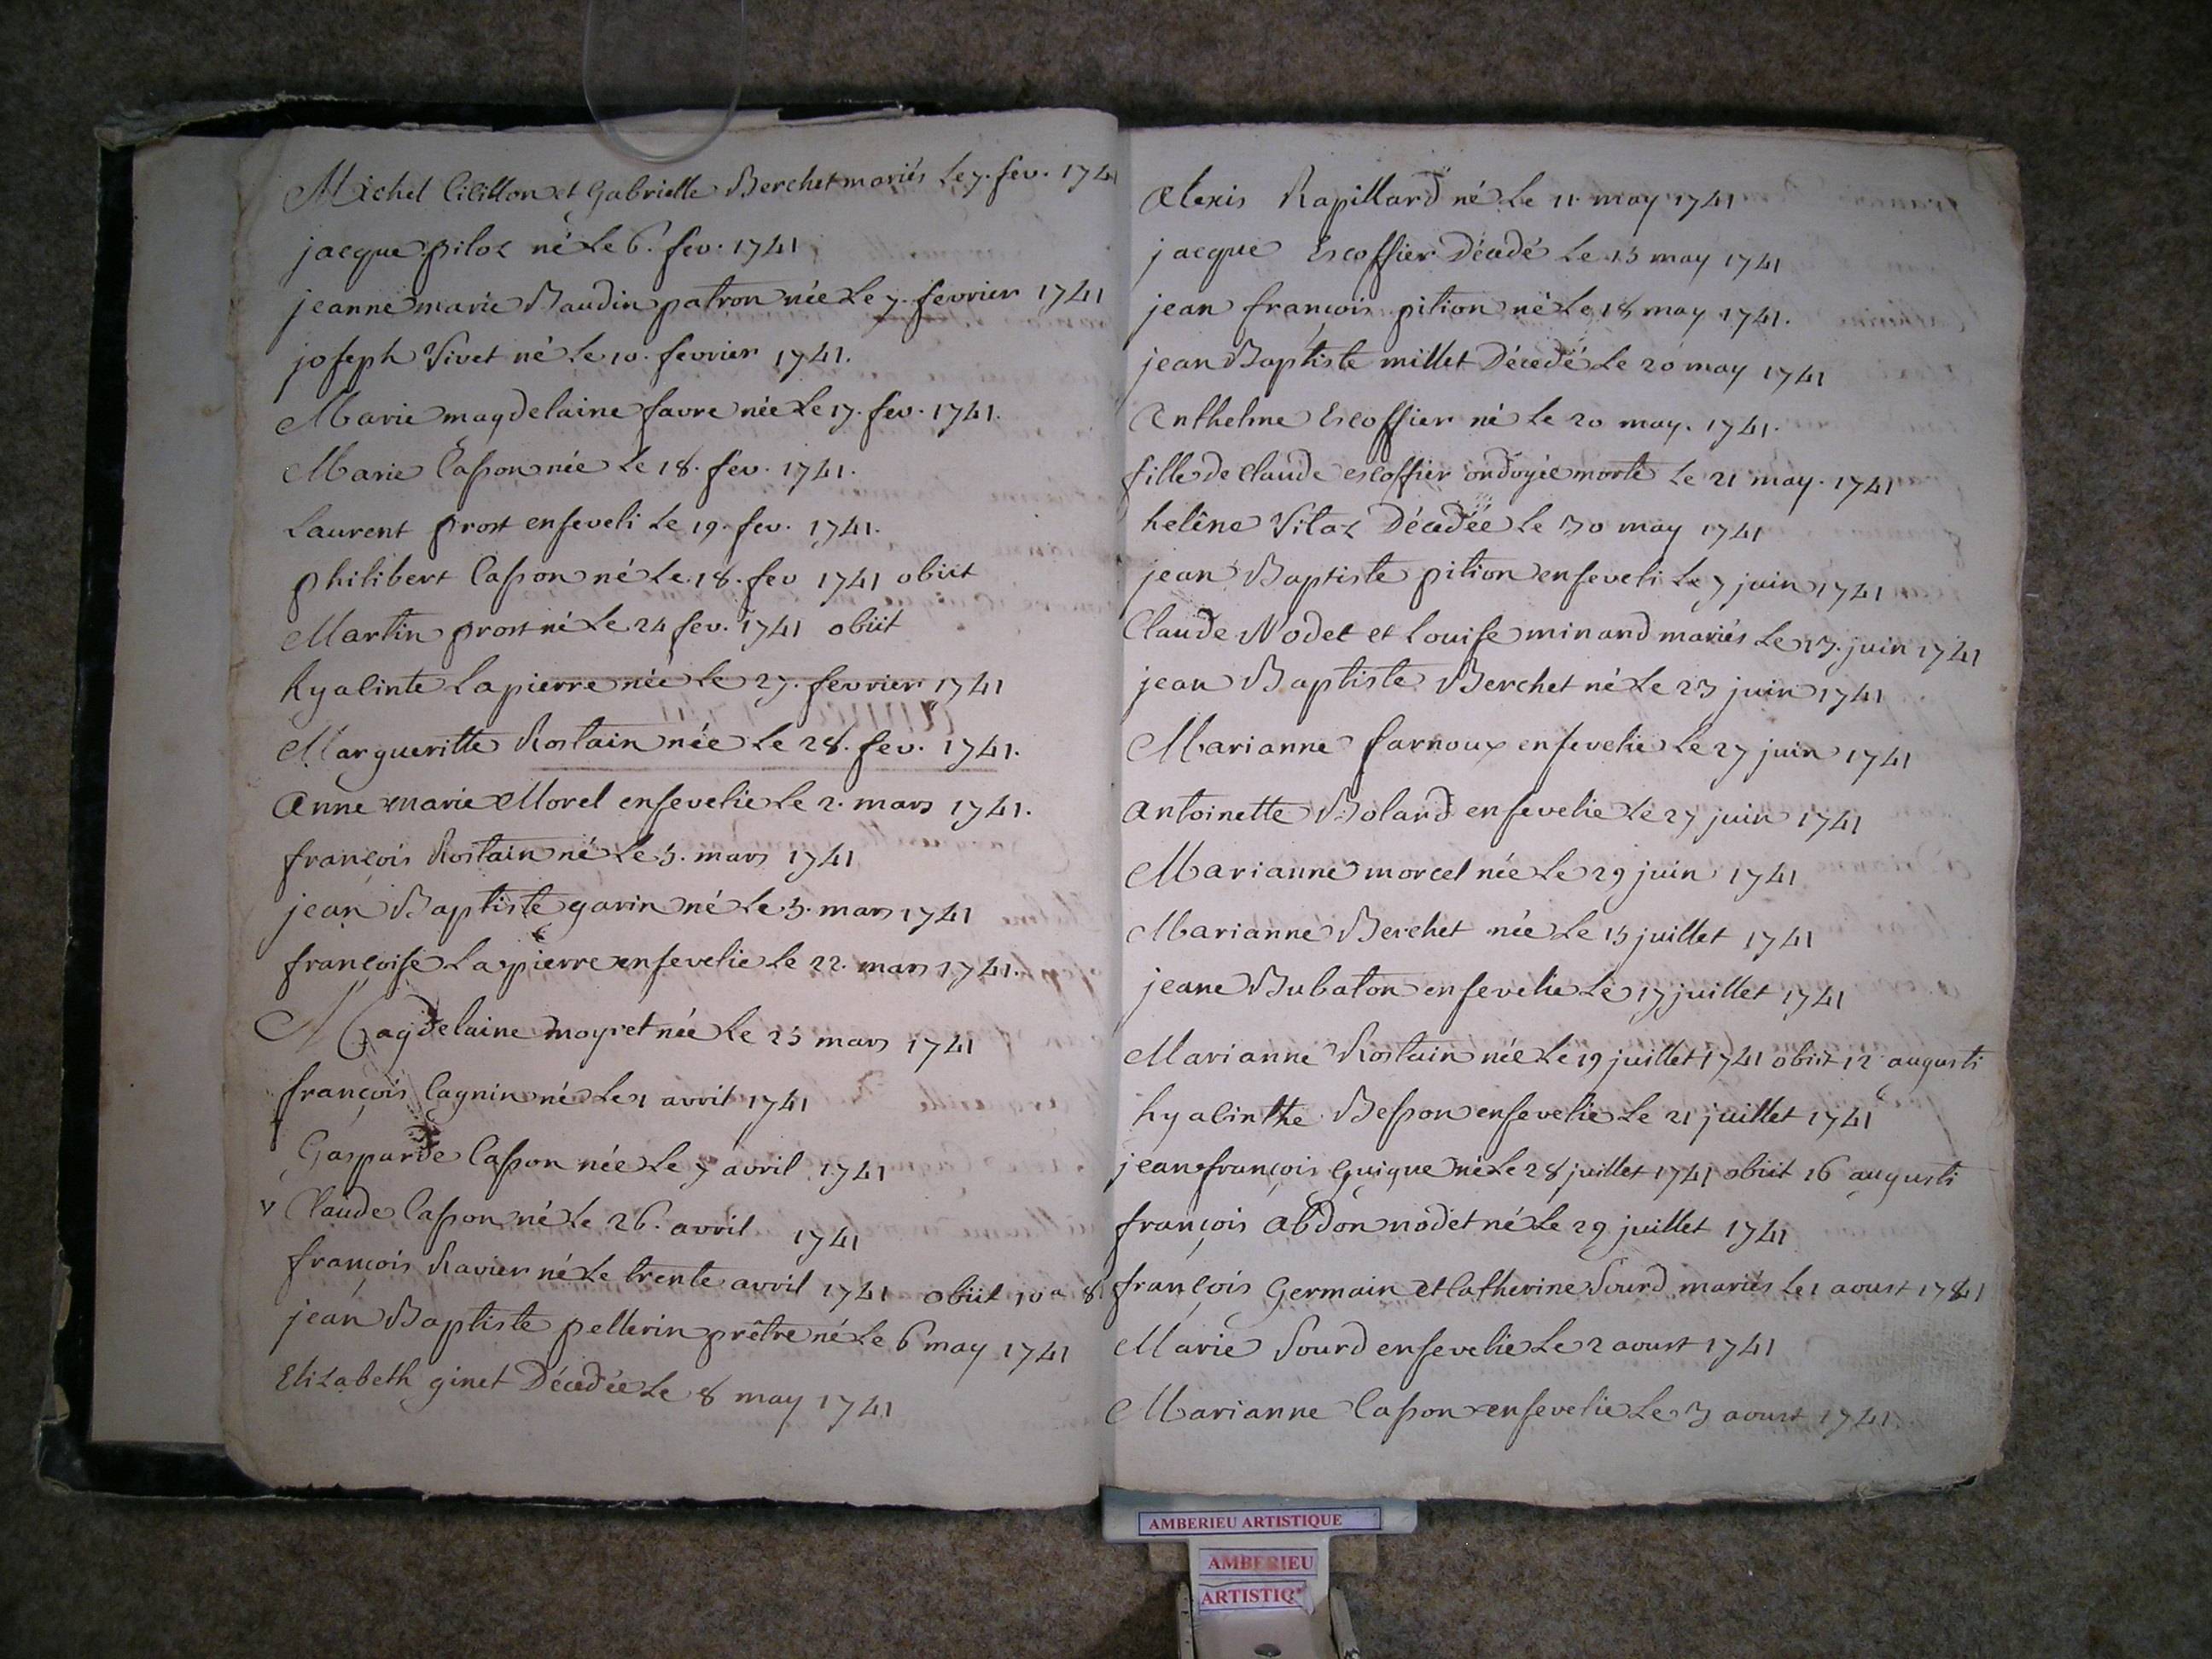 Michel Cilillon et Gabrielle Berchet mariés le 7. fev. 1741
jacque piloz né le 6. fev. 1741
jeanne marie Baudin patron née le 7. fevrier 1741
joseph Vivet né le 10. fevrier 1741.
Marie magdelaine favre née le 17. fev. 1741.
Marie Casson née le 18. fev. 1741.
Laurent prost enseveli le 19. fev. 1741.
philibert Casson né le 18. fev 1741 obiit
Martin prost né le 24 fev. 1741 obiit
hyacinte Lapierre née le 27. fevrier 1741
Margueritte Rostain née le 28. fev. 1741.
Anne marie Morel ensevelie le 2. mars 1741.
françois Rostain né le 3. mars 1741
jean Baptiste garin né le 3. mars 1741
françoise Lapierre ensevelie le 22. mars 1741.
Magdelaine moyret née le 25 mars 1741
françois Cagnin né le 1 avril 1741
Gasparde Casson née le 7 avril 1741
v Claude Casson né le 26. avril 1741
françois Ravier né le trente avril 1741 obiit 10a 8
jean Baptiste pellerin prêtre né le 6 may 1741
Elizabeth ginet Décedée le 8 may 1741
Alexis Rapillard né le 11. may 1741
jacque Escoffier Décedé le 13 may 1741
jean françois pition né le 18 may 1741.
jean Baptiste millet Décedé le 20 may 1741
Anthelme Escoffier né le 20 may. 1741.
fille de Claude escoffier ondoyée morte le 21 may. 1741
helêne Vitaz Décedée le 30 may 1741
jean Baptiste pition enseveli le 7 juin 1741
Claude Nodet et Louise minand mariés le 13. juin 1741
jean Baptiste Berchet né le 23 juin 1741
Marianne farnoux ensevelie le 27 juin 1741
Antoinette Bolard ensevelie le 27 juin 1741
Marianne morcel née le 29 juin 1741
Marianne Berchet née le 15 juillet 1741
jeane Bubaton ensevelie le 17 juillet 1741
Marianne Rostain née le 19 juillet 1741 obiit 12 augusti
hyacinthe Besson ensevelie le 21 juillet 1741
jean françois Guigue né le 28 juillet 1741 obiit 16 augusti
françois Abdon nodet né le 29 juillet 1741
françois Germain et Catherine Sourd mariés le 1 aoust 1741
Marie Sourd ensevelie le 2 aoust 1741
Marianne Casson ensevelie le 3 aoust 1741
AMBERIEU ARTISTIQUE
AMBERIEU
ARTISTIQ